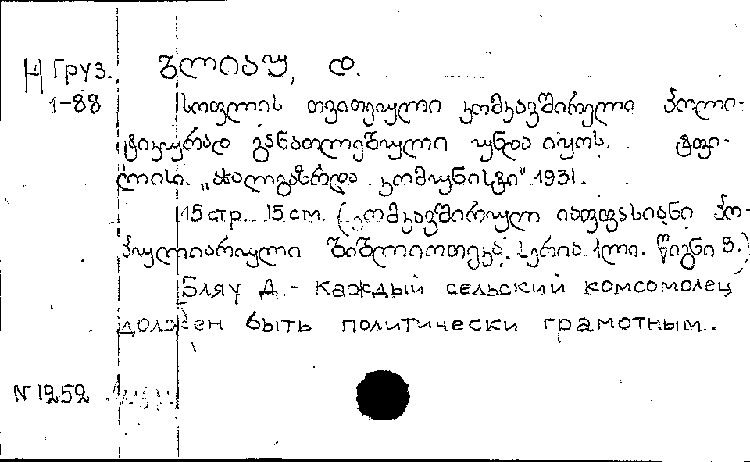 Н Груз. ბლიაუ, დ.
1-88 სოფლის თვითეული კომკავშირელი პოლი-
ტიკურად განათლებული უნდა იყოს. ტფი-
ლისი. „ახალგაზრდა კომუნისტი" 1931.
15 стр. 15 см. (კომკავშირულ იაფფასიანი პო-
პულიარული ბიბლიოთეკა. სერია 1ლი. წიგნი 3.)
Бляу Д. - Каждый сельский комсомолец
должен быть политически грамотным.
N 1252